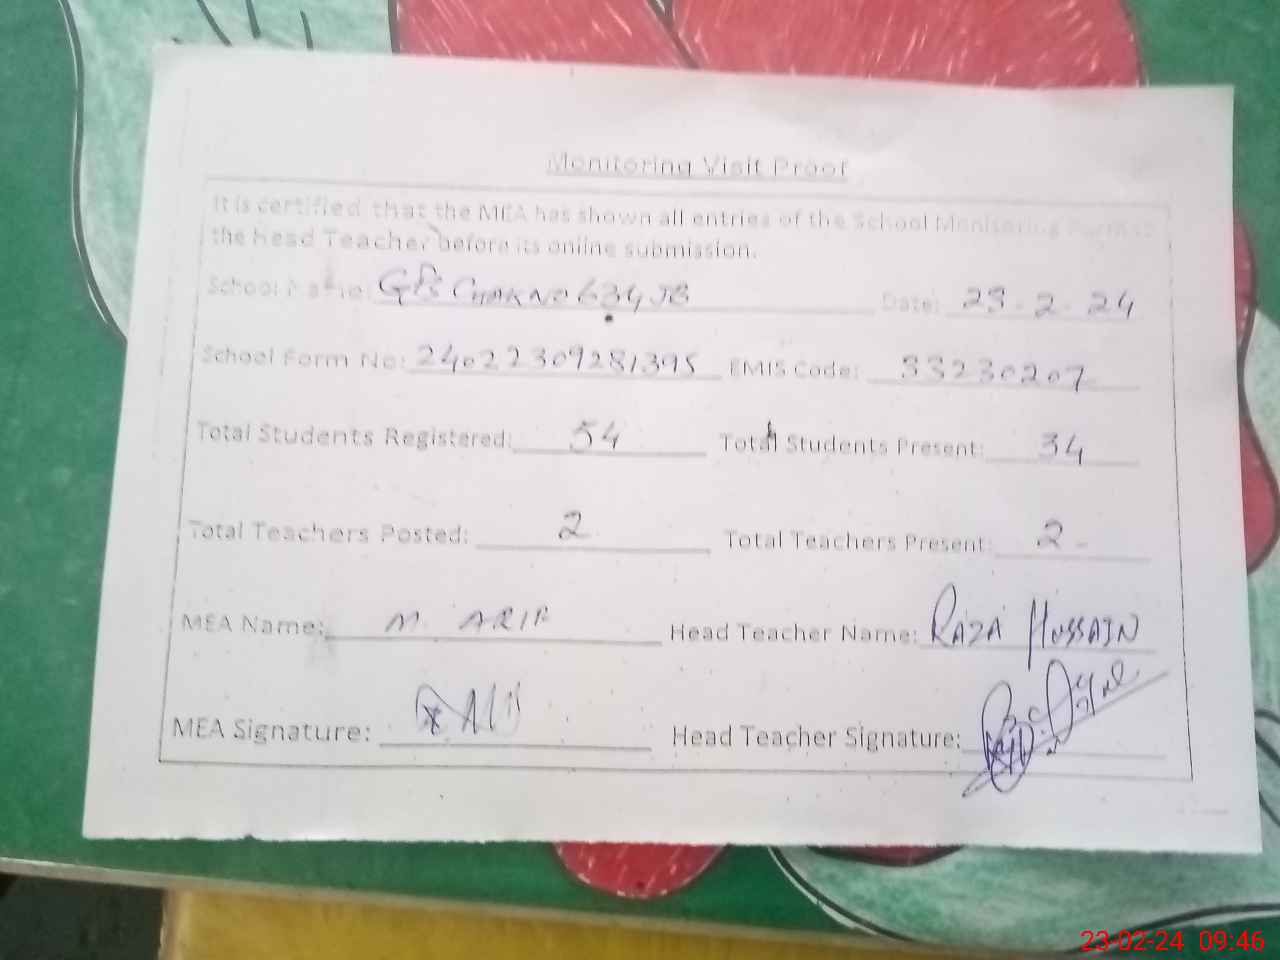 Monitoring Visit Proof
It is certified that the MEA has shown all entries of the School Monitoring Form to
the Head Teacher before its online submission.
School Name: GPS CHAK NO 634 JB Date: 23-2-24
School Form No: 24022309281395 EMIS Code: 33230207
Total Students Registered: 54 Total Students Present: 34
Total Teachers Posted: 2 Total Teachers Present: 2-
MEA Name: M. ARIF Head Teacher Name: RAZA HUSSAIN
MEA Signature: Head Teacher Signature:
23-02-24 09:46